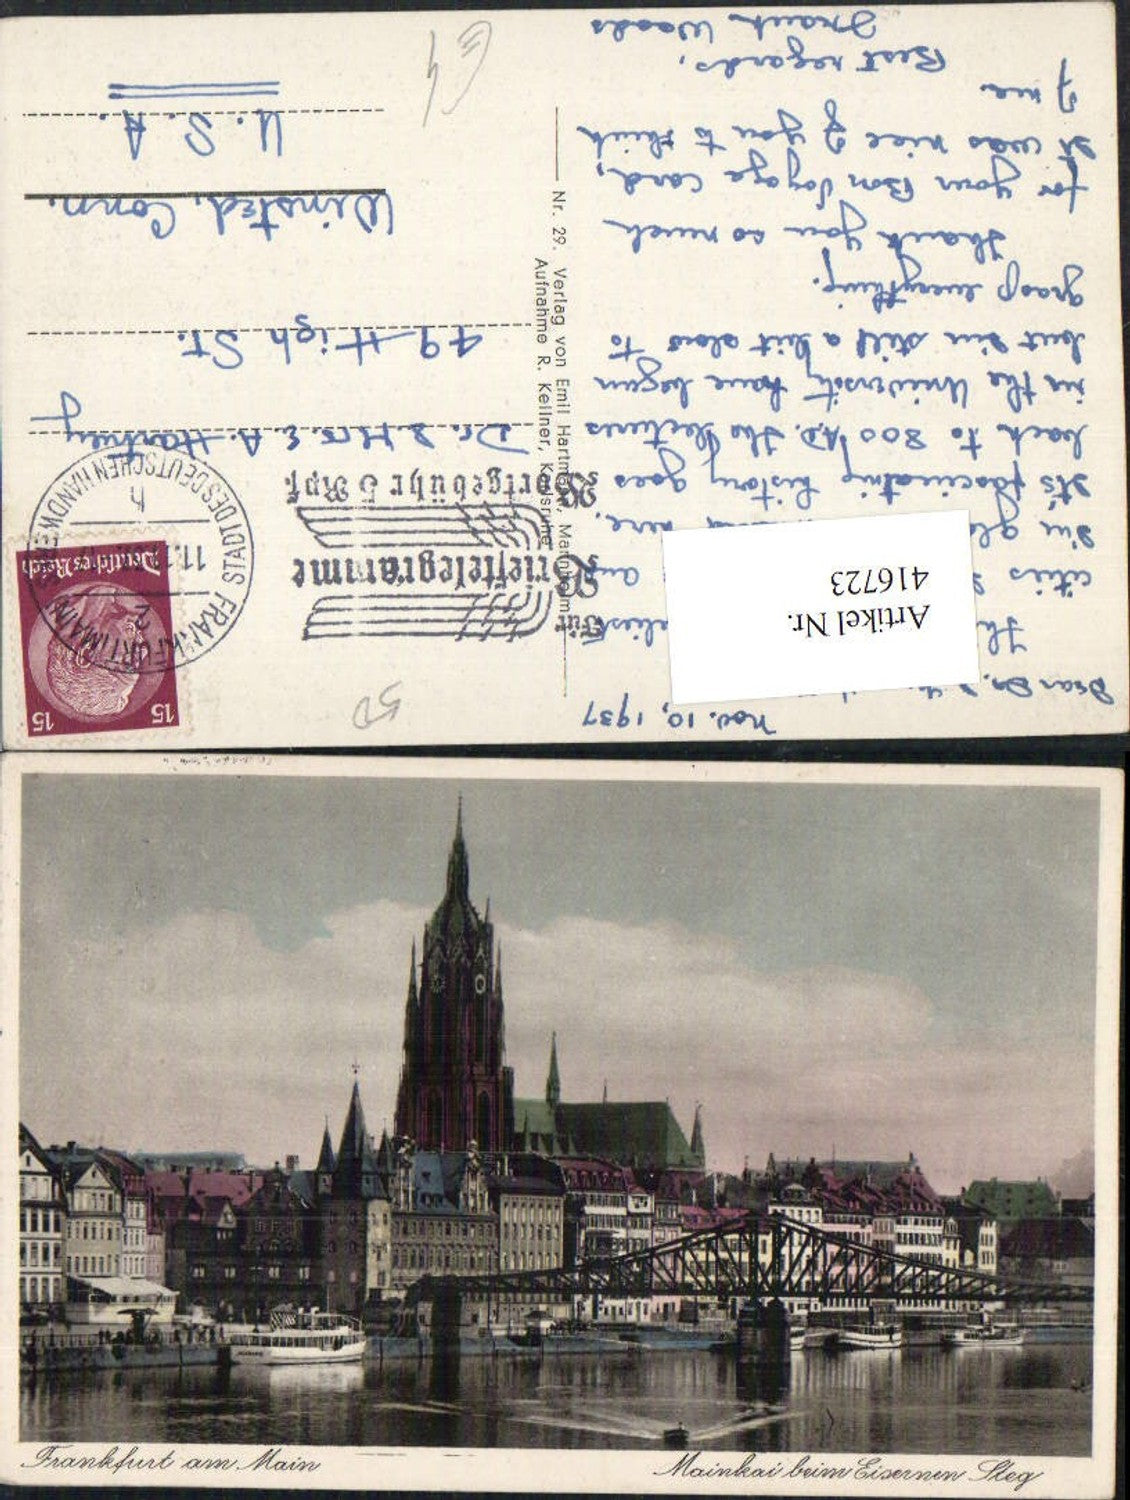 Nov. 10, 1937
Dear Dr.
cities
I'm glad here.
It's fascinating history goes
back to 800 A.D. The lectures
in the University have begun
but I'm still a bit slow to
grasp everything.
Thank you so much
for your Bon Voyage card,
It was nice of you to think
of me
Best regards,
Frank Woods
Artikel Nr.
416723
Nr. 29. Verlag von Emil Hartmann, Mannheim
Aufnahme R. Kellner, Karlsruhe
Für
Brieftelegramme
Ortgebühr 5 Rpf.
FRANKFURT (MAIN)
2
11.11.37.17
h
STADT DES DEUTSCHEN HANDWERKS
15 15
Deutsches Reich
Dr. & Mrs. E. A. Hartney
49 High St.
Winsted, Conn.
U. S. A.
50
Frankfurt am Main
Mainkai beim Eisernen Steg